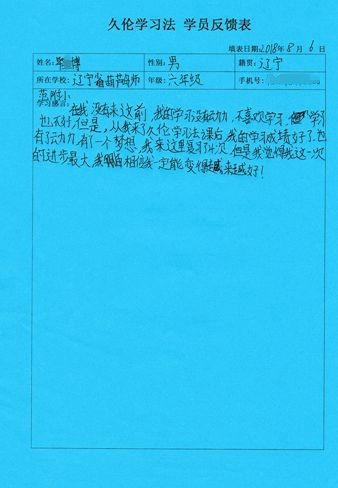 久伦学习法 学员反馈表
填表日期2018年8月6日
姓名: 博 性别: 男 籍贯: 辽宁
所在学校: 辽宁省葫芦岛师 年级: 六年级 手机号:
范附小
学习感言: 在我没有来这前,我的学习没有动力,不喜欢学习,学习
也不好,但是,从我来了久伦学习法课后,我的学习成绩好了,也
有了动力,有了一个梦想,我来这里复习4次,但是我觉得我这一次
的进步最大,我相信我一定能变得越来越好!